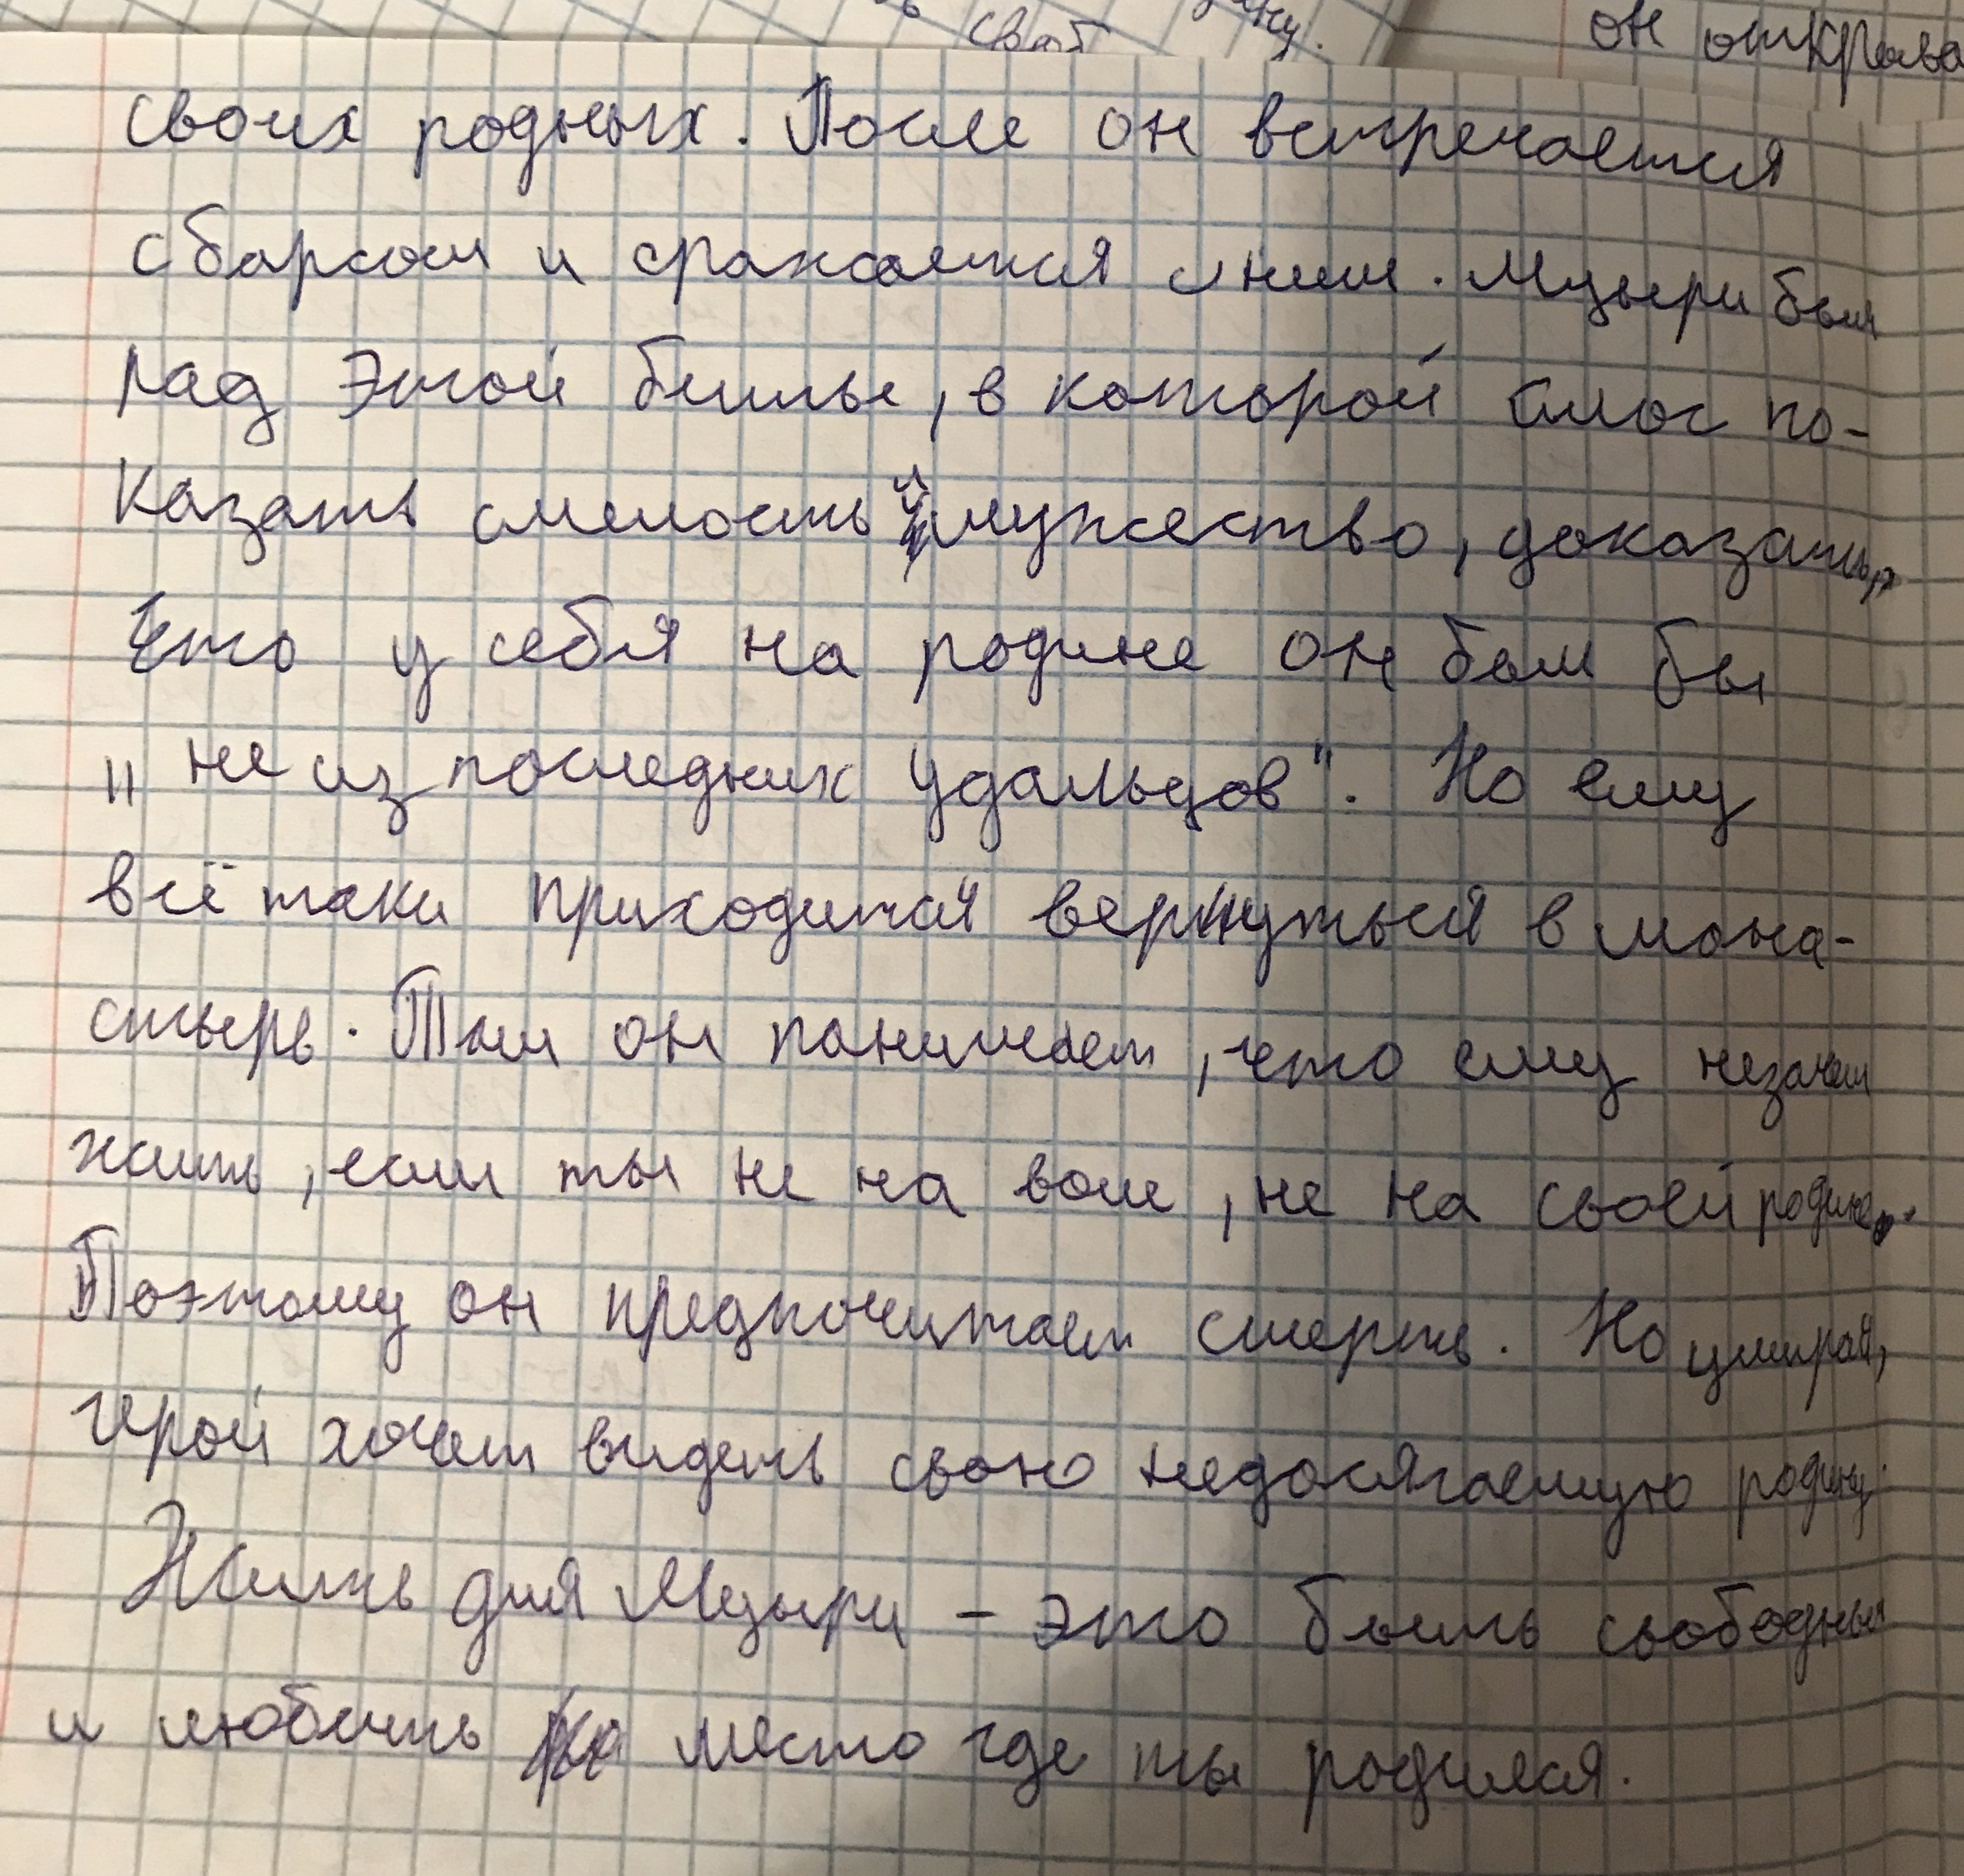 он открыва
своих родных. После он встречается
с барсом и сражается с ним. Мцыри был
рад этой битве, в которой смог по-
казать смелость и мужество, доказать,
что у себя на родине он был бы
"не из последних удальцов". Но ему
всё таки приходится вернуться в мона-
стырь. Там он понимает, что ему незачем
жить, если ты не на воле, не на своей родине.
Поэтому он предпочитает смерть. Но умирая,
герой хочет видеть свою недосягаемую родину.
Жить для Мцыри - это быть свободным
и любить место где ты родился.